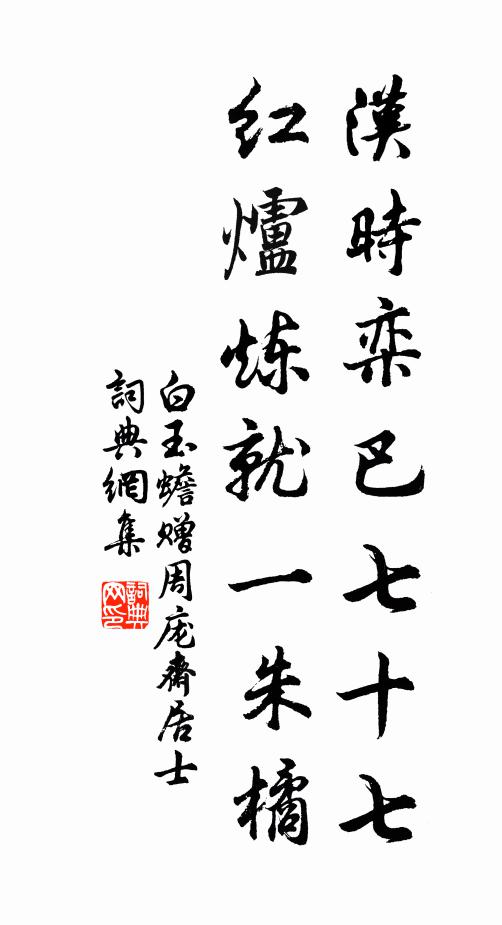 漢時栾巴七十七
紅爐炼就一朱橘
白玉蟾赠周庞齋居士
詞典網集
詞典
网印